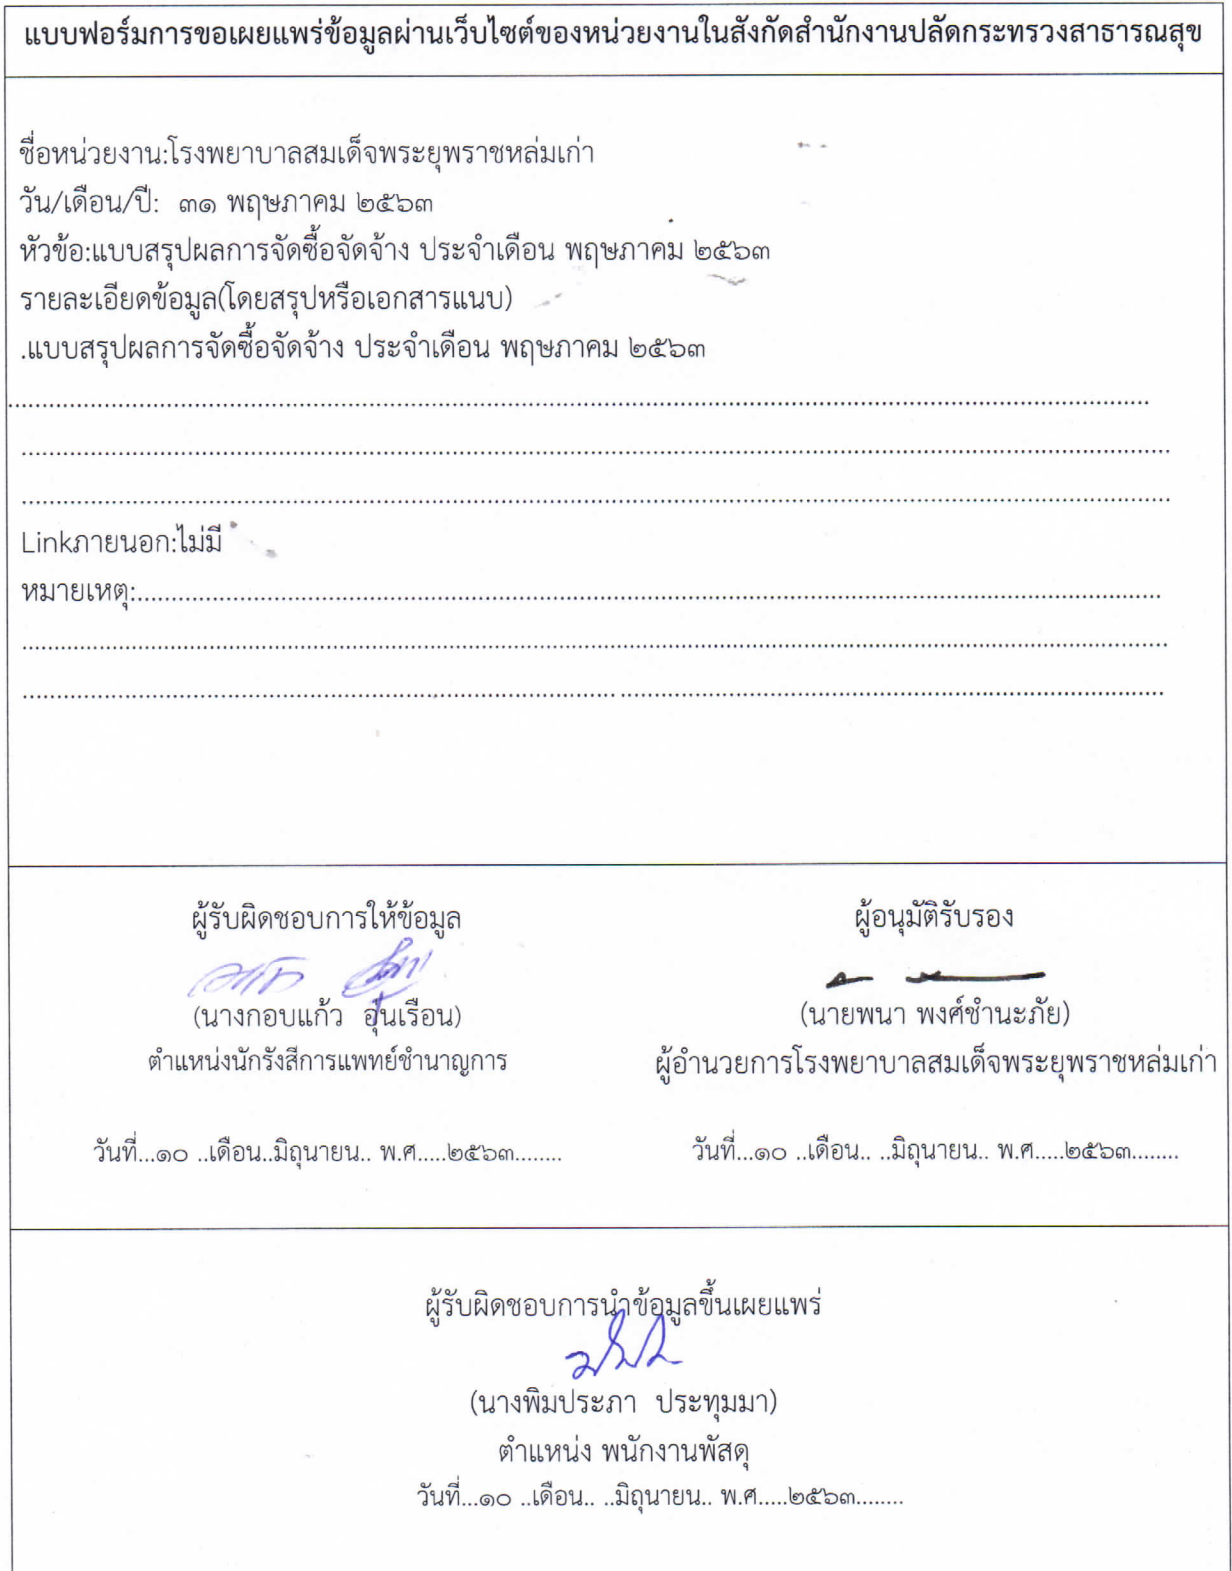 แบบฟอร์มการขอเผยแพร่ข้อมูลผ่านเว็บไซต์ของหน่วยงานในสังกัดสำนักงานปลัดกระทรวงสาธารณสุข
ชื่อหน่วยงาน:โรงพยาบาลสมเด็จพระยุพราชหล่มเก่า
วัน/เดือน/ปี: ๓๑ พฤษภาคม ๒๕๖๓
หัวข้อ:แบบสรุปผลการจัดซื้อจัดจ้าง ประจำเดือน พฤษภาคม ๒๕๖๓
รายละเอียดข้อมูล(โดยสรุปหรือเอกสารแนบ)
.แบบสรุปผลการจัดซื้อจัดจ้าง ประจำเดือน พฤษภาคม ๒๕๖๓
Linkภายนอก:ไม่มี
หมายเหตุ:..........
ผู้รับผิดชอบการให้ข้อมูล
(นางกอบแก้ว อุ่นเรือน)
ตำแหน่งนักรังสีการแพทย์ชำนาญการ
วันที่...๑๐ ..เดือน..มิถุนายน.. พ.ศ.....๒๕๖๓........
ผู้อนุมัติรับรอง
(นายพนา พงศ์ชำนะภัย)
ผู้อำนวยการโรงพยาบาลสมเด็จพระยุพราชหล่มเก่า
วันที่...๑๐ ..เดือน.. ..มิถุนายน.. พ.ศ.....๒๕๖๓........
ผู้รับผิดชอบการนำข้อมูลขึ้นเผยแพร่
(นางพิมประภา ประทุมมา)
ตำแหน่ง พนักงานพัสดุ
วันที่...๑๐ ..เดือน.. ..มิถุนายน.. พ.ศ.....๒๕๖๓........